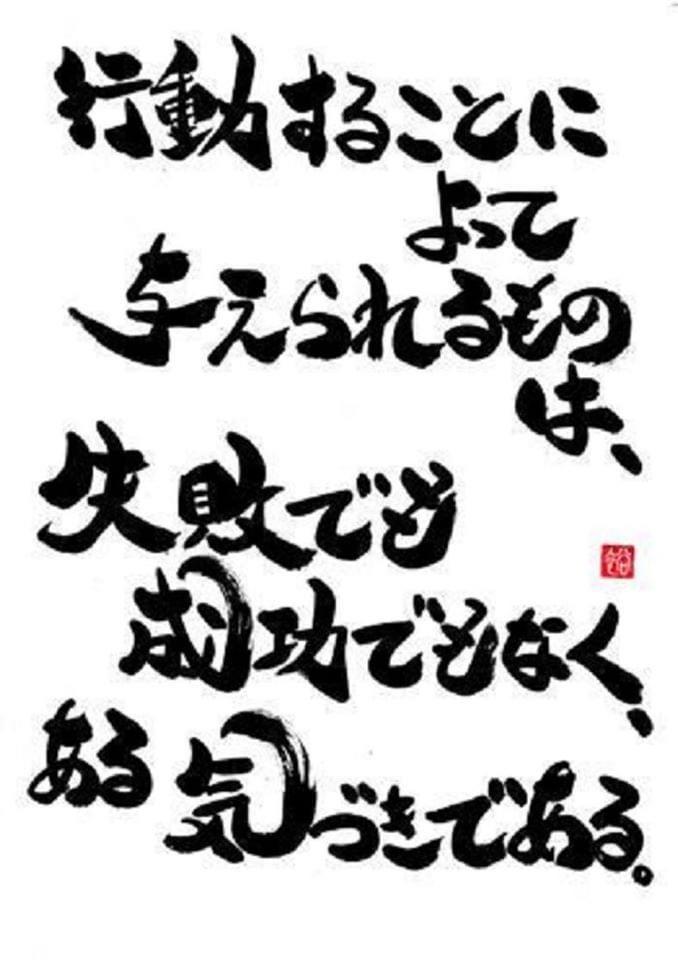 行動することに
よって
与えられるもの
は、
失敗でも
成功でもなく、
ある気づきである。